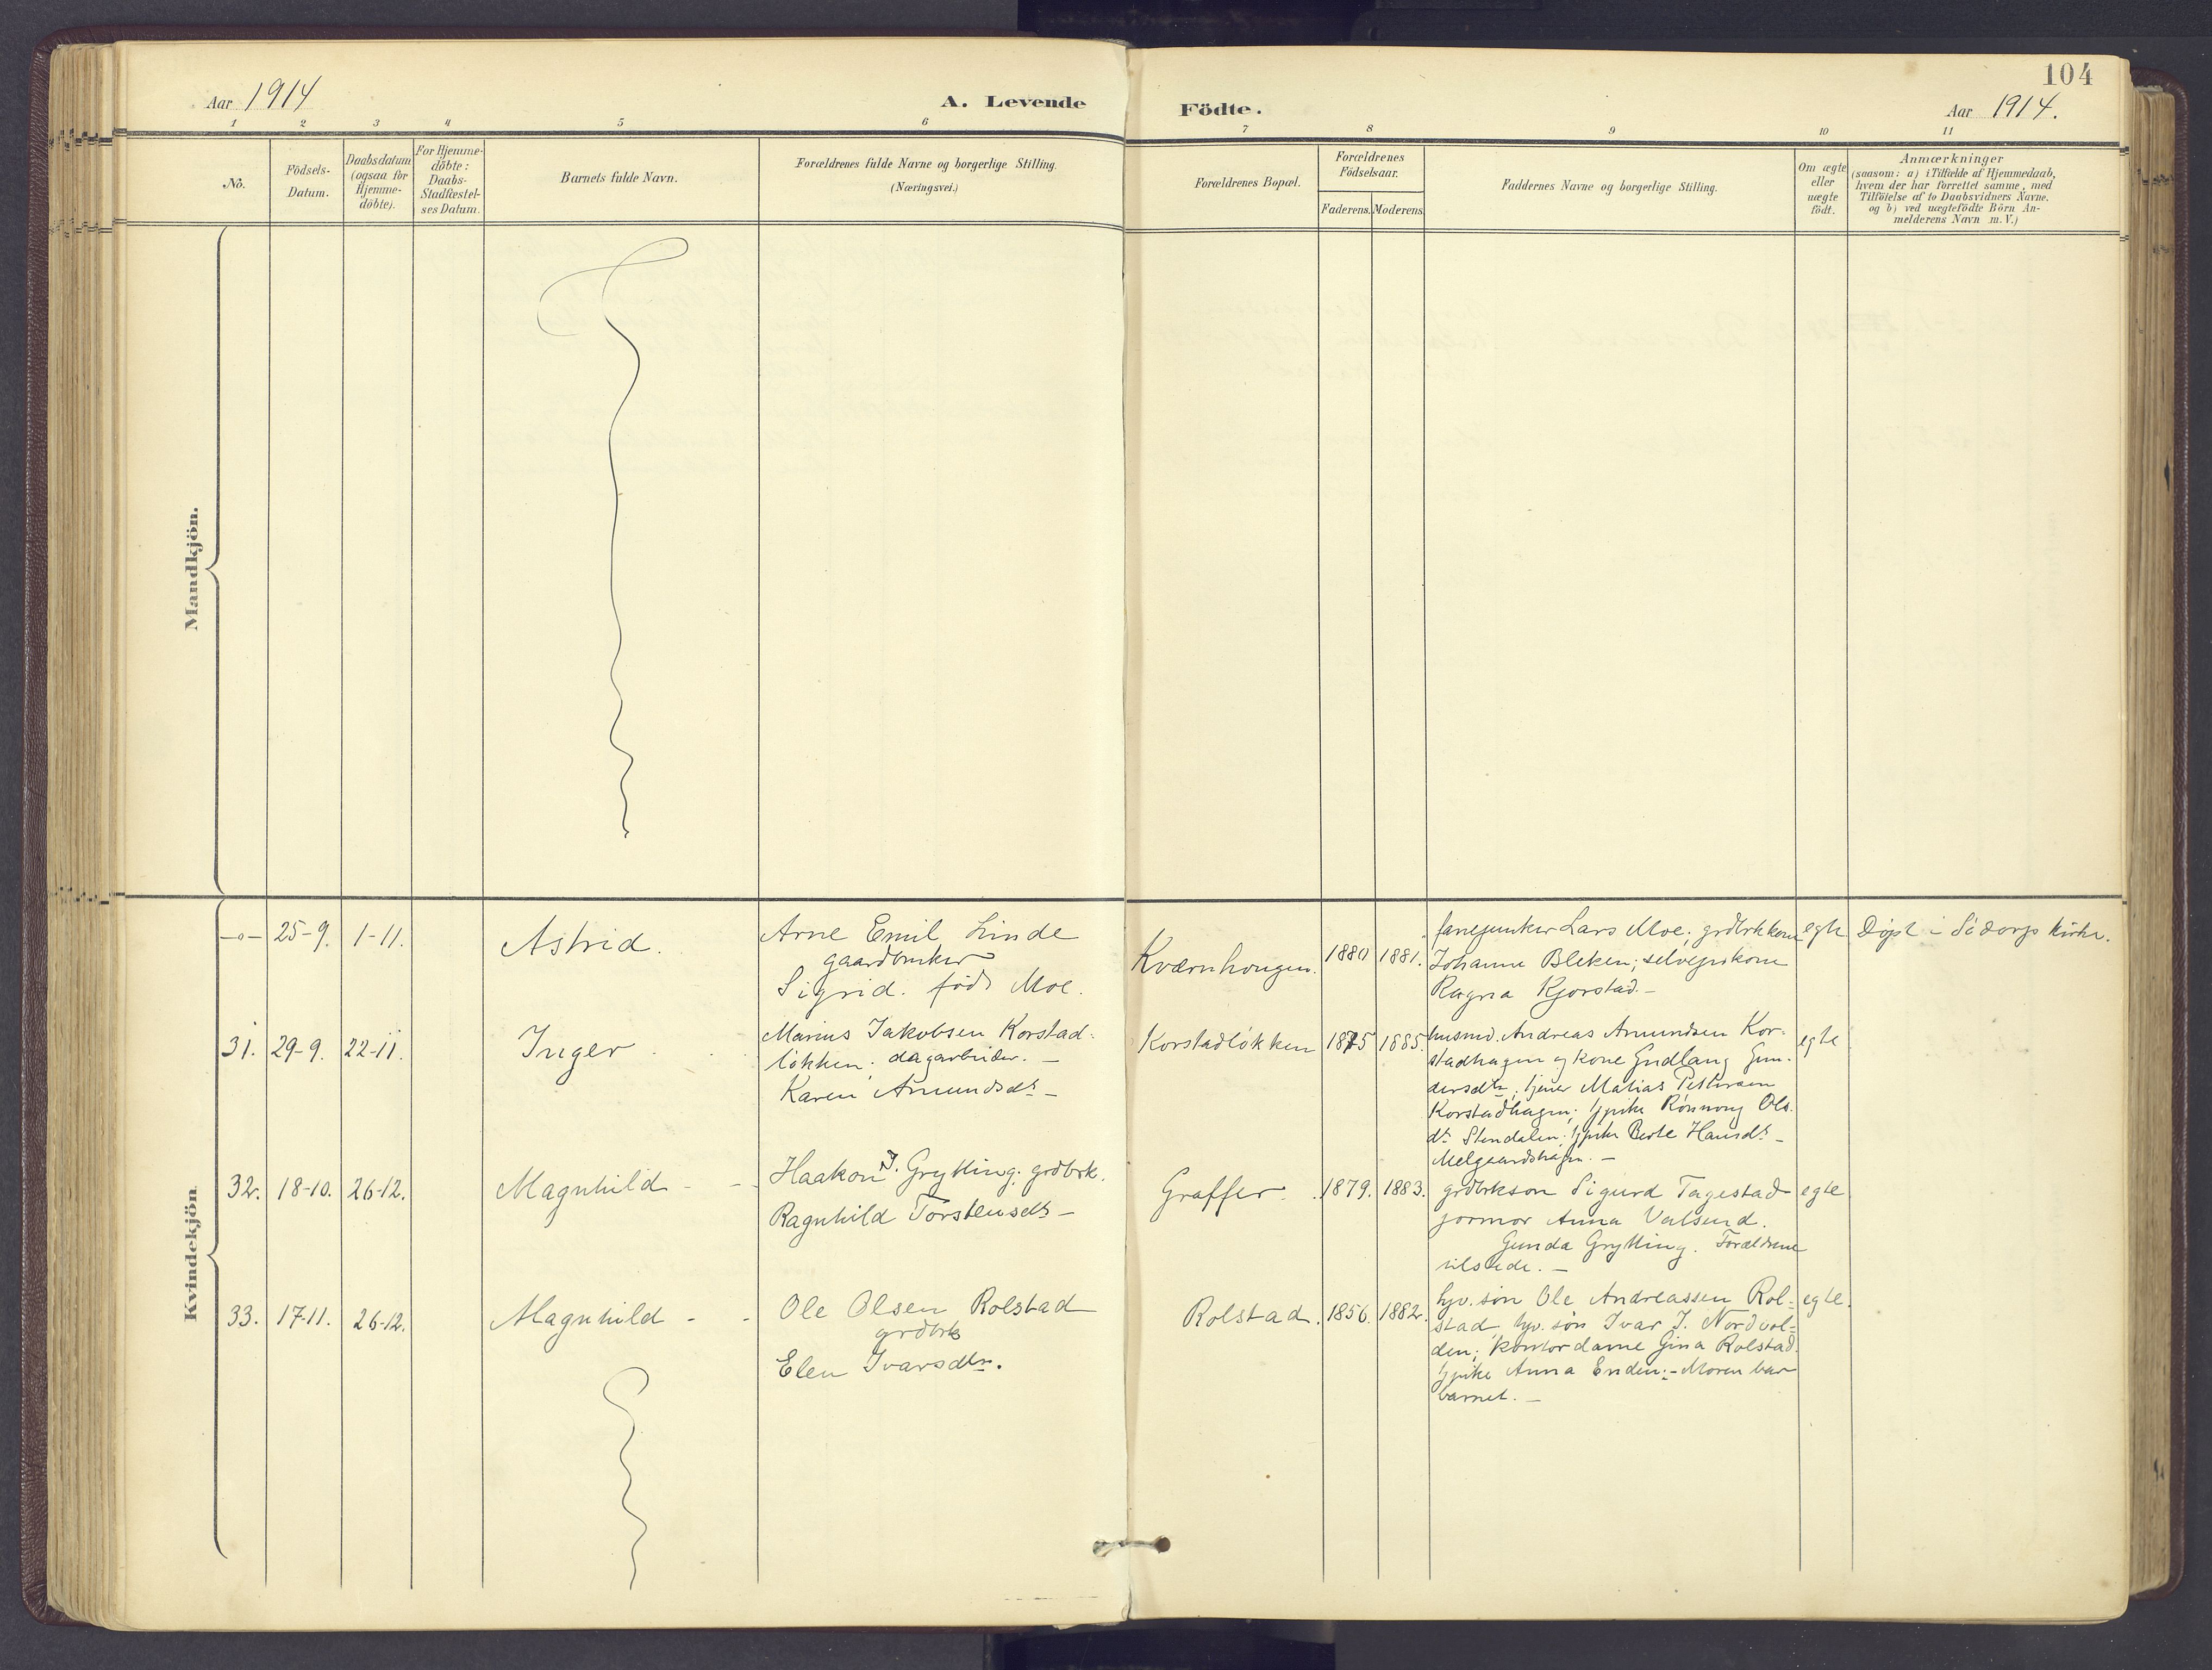 104
Aar 1914
A. Levende Födte.
Aar 1914.
1 2 3 4 5 6 7 8 9 10 11
No.
Födsels-
Datum.
Daabsdatum
(ogsaa for
Hjemme-
döbte).
For Hjemme-
döbte:
Daabs-
Stadfæstel-
ses Datum.
Barnets fulde Navn.
Forældrenes fulde Navne og borgerlige Stilling.
(Næringsvei.)
Forældrenes Bopæl.
Forældrenes
Födselsaar.
Faderens. Moderens.
Faddernes Navne og borgerlige Stilling.
Om ægte
eller
uægte
födt.
Anmærkninger
(saasom: a) i Tilfælde af Hjemmedaab,
hvem der har forrettet samme, med
Tilföielse af to Daabsvidners Navne,
og b) ved uægtefödte Börn An-
melderens Navn m.V.)
Mandkjön.
Kvindekjön.
-o- 25-9. 1-11.
Astrid.
Arne Emil Linde
gaardbruker
Sigrid. født Moe.
Kværnhougen.
1880 1881.
fanejunker Lars Moe; grdbrkkone
Johanne Bleken; selveierkone
Ragna Kjorstad.-
egte
Døpt i Sødorp kirke.
31. 29-9. 22-11.
Inger
Marius Jakobsen Korstad-
løkken; dagarbeider. -
Karen Amundsdt. -
Korstadløkken
1875 1885.
husmd. Andreas Amundsen Kor-
stadhagen og kone Gudlaug Gun-
dersdtr; tjener Matias Pettersen
Korstadhagen; tjpike Rønnoug Ols-
dt. Stendalen; tjpike Berte Hansdt. -
Melgaardshagen. -
egte
32. 18-10. 26-12.
Magnhild - -
Haakon J. Grytting; grdbrk.
Ragnhild Torstensdt. -
Graffer.
1879. 1883.
grdbrkson Sigurd Tagestad
jormor Anna Valsend.
Gunda Grytting. Forældrene
tilstede. -
egte
33. 17-11. 26-12.
Magnhild - -
Ole Olsen Rolstad
grdbrk
Elen Ivarsdtr.
Rolstad.
1856. 1882.
hjv. søn Ole Andreassen Rol-
stad, hjv. søn Ivar J. Nordvol-
den; kontordame Gina Rolstad.
tjpike Anna Enden; - Moren bar
barnet. -
egte.